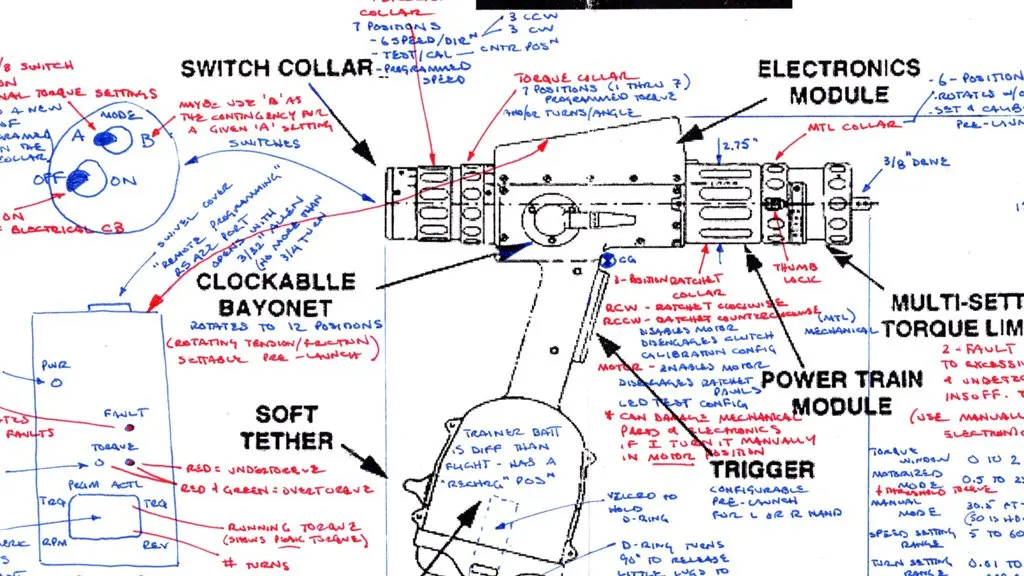 COLLAR
7 POSITIONS
- 6 SPEED/DIRN
3 CCW
3 CW
- TEST/CAL — CNTR POSN
- PROGRAMMED
SPEED
SWITCH COLLAR
TORQUE COLLAR
7 POSITIONS (1 THRU 7)
PROGRAMMED TORQUE
AND/OR TURNS/ANGLE
ELECTRONICS
MODULE
- 6-POSITION
- ROTATES W/O
- SET & CALIB
PRE-LAUN
MTL COLLAR
2.75"
3/8" DRIVE
SWITCH
TORQUE SETTINGS
A NEW
OF
THE
COLLAR
MODE
A
B
OFF
ON
ON
ELECTRICAL CB
MAYBE USE 'B' AS
THE CONTINGENCY FOR
A GIVEN 'A' SETTING
SWITCHES
SWIVEL COVER
"REMOTE PROGRAMMING"
RS 422 PORT
OPENS WITH
3/32" ALLEN
(NO MORE THAN
3/4 TURN
CLOCKABLLE
BAYONET
ROTATES TO 12 POSITIONS
(ROTATING TENSION/FRICTION)
SETTABLE PRE-LAUNCH)
CG
3-POSITION RATCHET
COLLAR
RCW - RATCHET CLOCKWISE
RCCW - RATCHET COUNTERCLOCKWISE
DISABLES MOTOR
DISENGAGES CLUTCH
CALIBRATION CONFIG
MOTOR - ENABLES MOTOR
DISENGAGES RATCHET
PAWLS
LED TEST CONFIG
* CAN DAMAGE MECHANICAL
PARTS & ELECTRONICS
IF I TURN IT MANUALLY
IN MOTOR POSITION
THUMB
LOCK
MULTI-SETT
TORQUE LIM
(MTL)
MECHANICAL
POWER TRAIN
MODULE
2 - FAULT
TO EXCESSI
& UNDERTO
INSUFF. T
(USE MANUALL
ELECTRONIC
PWR
FAULT
FAULTS
TORQUE
PRGM ACTL
TRQ
TRQ
RPM
REV
RED = UNDERTORQUE
RED & GREEN = OVERTORQUE
RUNNING TORQUE
(SHOWS PEAK TORQUE)
# TURNS
SOFT
TETHER
TRAINER BATT
IS DIFF THAN
FLIGHT - HAS A
"RECHRG" POSN
TRIGGER
CONFIGURABLE
PRE-LAUNCH
FOR L OR R HAND
VELCRO TO
HOLD
D-RING
D-RING TURNS
90° TO RELEASE
LITTLE LUGS TO
TORQUE
WINDOW 0 TO 2
MOTORIZED
MODE 0.5 TO 25
* THRESHOLD TORQUE
MANUAL
MODE 30.5 FT-
(50 IS HO
SPEED SETTING
RANGE 5 TO 60
TURN SETTING
RANGE 0.01 TO